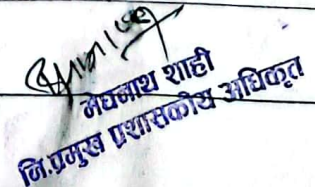 मेघनाथ शाही
जि.प्रमुख प्रशासकीय अधिकृत